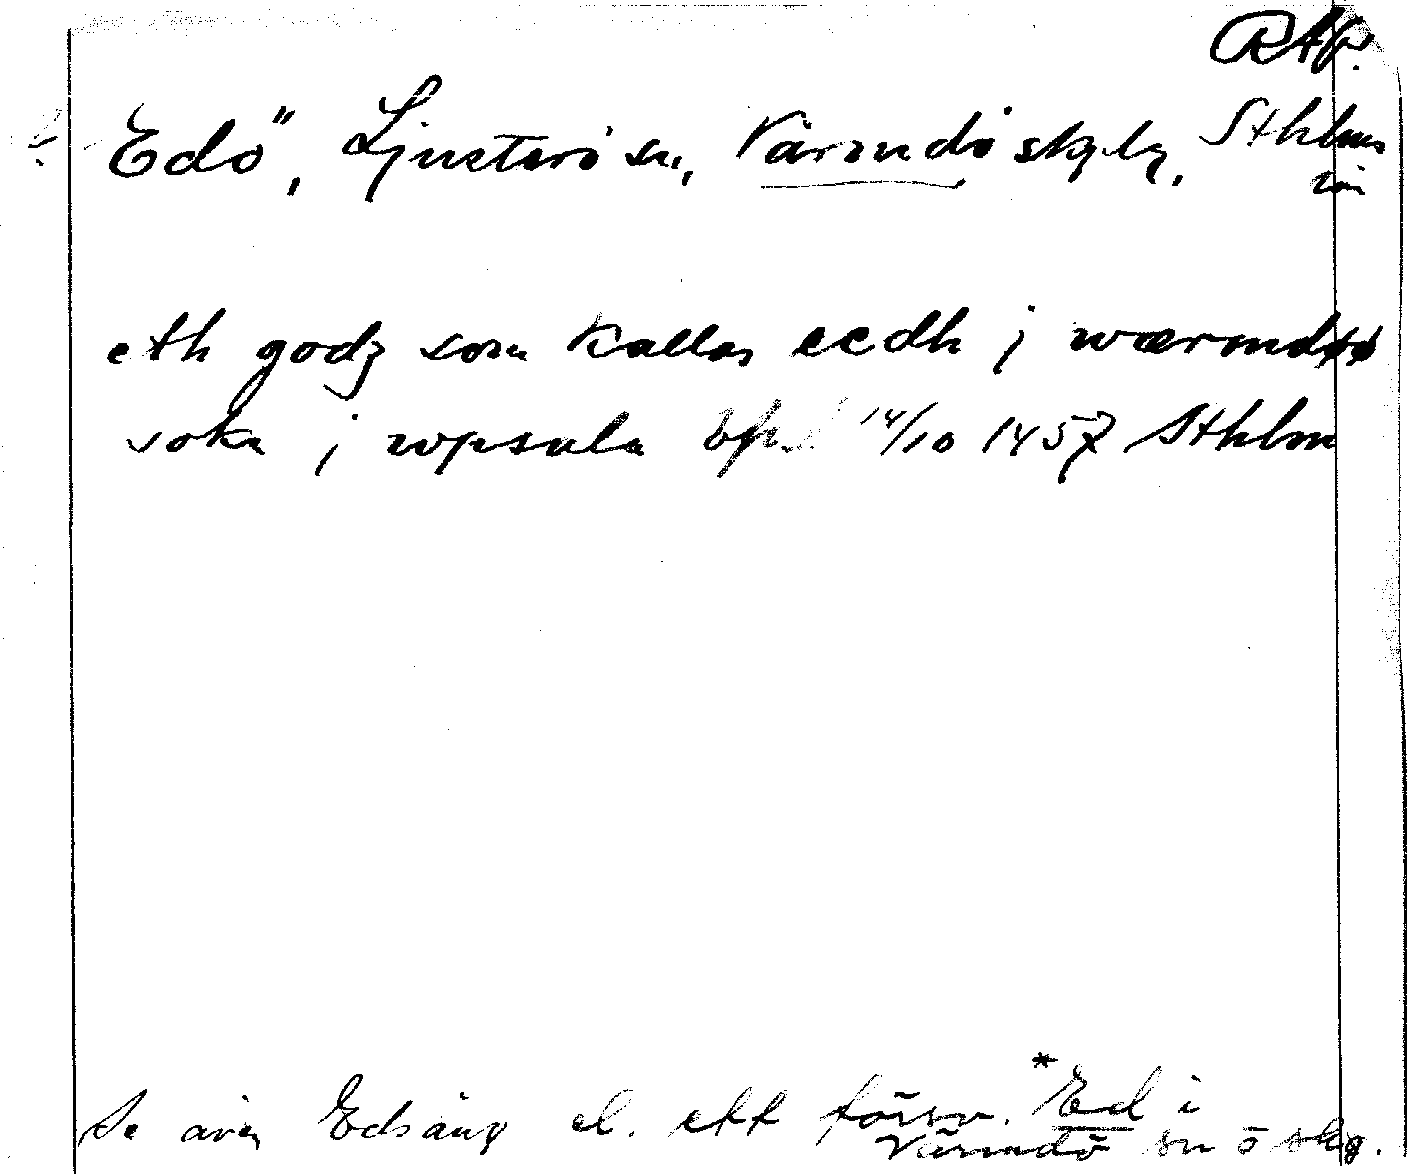 RAp.
Edö, Ljusterö sn, Värmdö skg, Sthlms
län
eth godz som kallas eedh j wærmdøø
sokn j wpsala 14/10 1457 Sthlm
Se även Edsäng el. ett försv. *Ed i
Värmdö sn o skg.